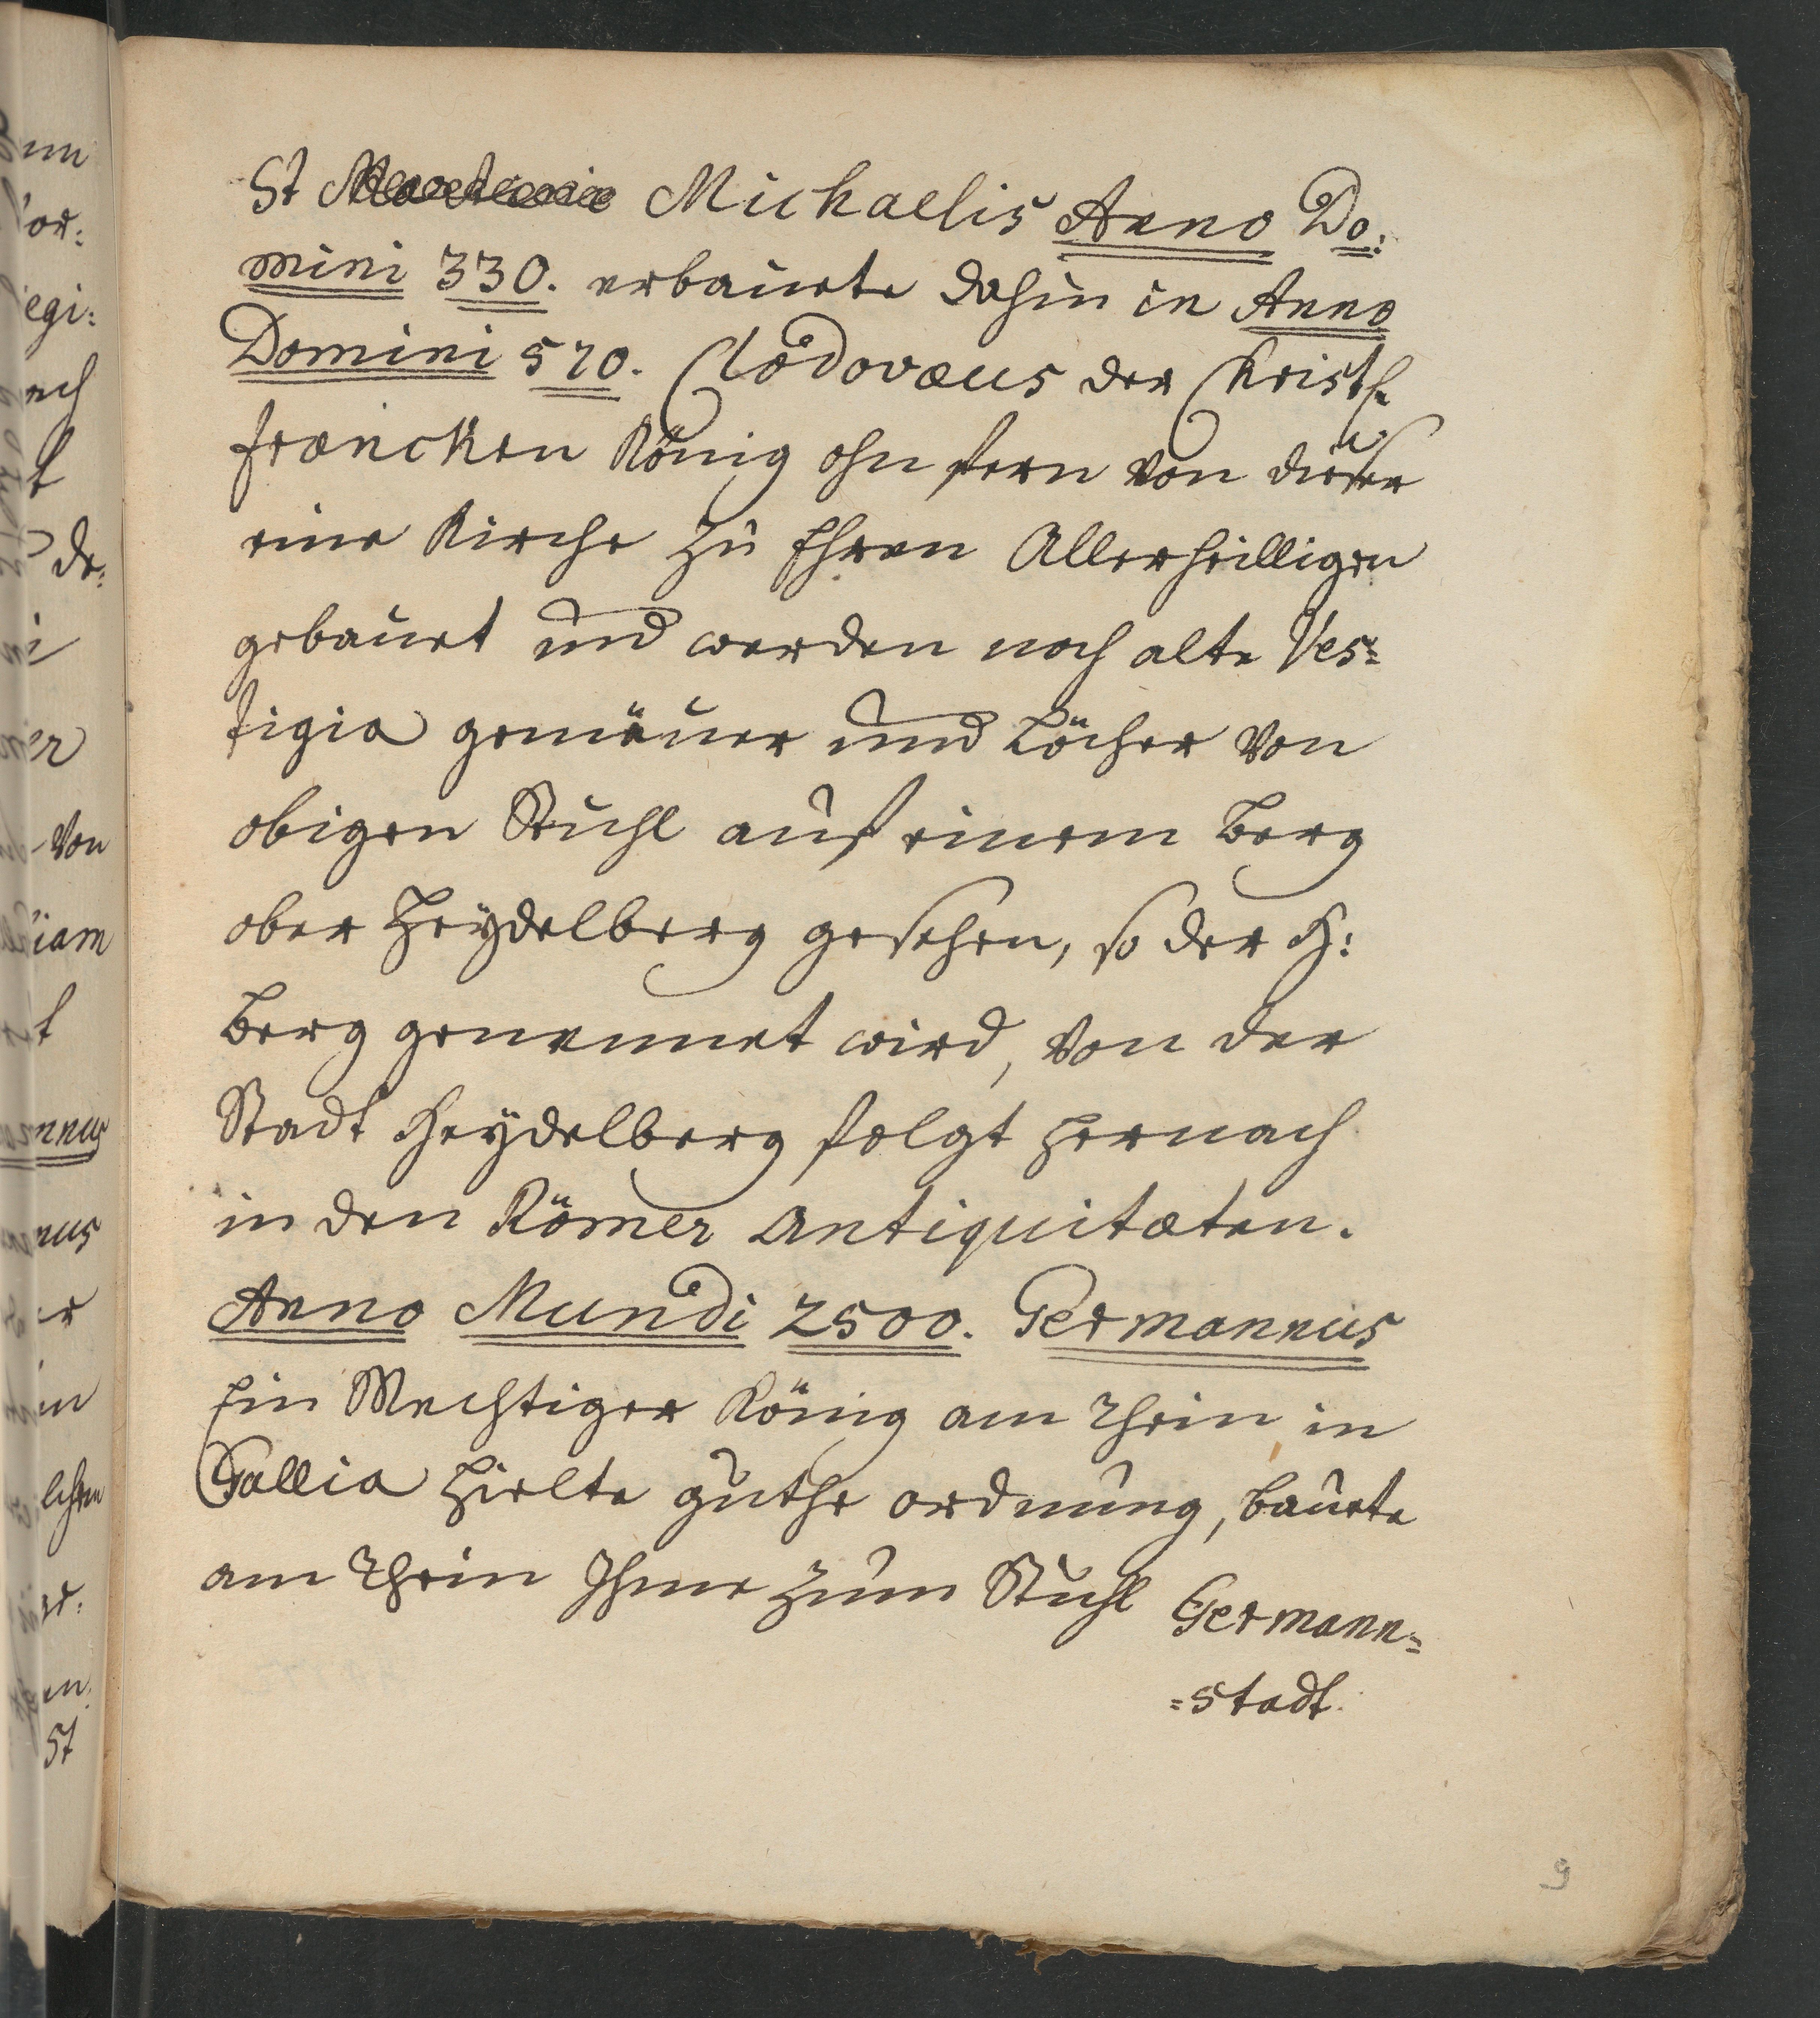 St Michaelis Anno Do:
mini 330. erbauete dahin in Anno
Domini 570. Clodovæus der Christl.
francken König ohn fern von dieser
eine Kirche zu Ehren Allerheilligen
gebauet und werden noch alte Ves=
tigia gemäuer und Löcher von
obigen Stuhl auf einem Berg
ober Heydelberg gesehen, so der H:
Berg genennet wird, von der
Stadt Heydelberg folgt hernach
in den Römer antiquitæten.
Anno Mundi 2500. Germannus
Ein Mechtiger König am Rhein in
Gallia hielte guthe ordnung, bauete
am Rhein Ihme zum Stuhl Germann=
=stadt
9